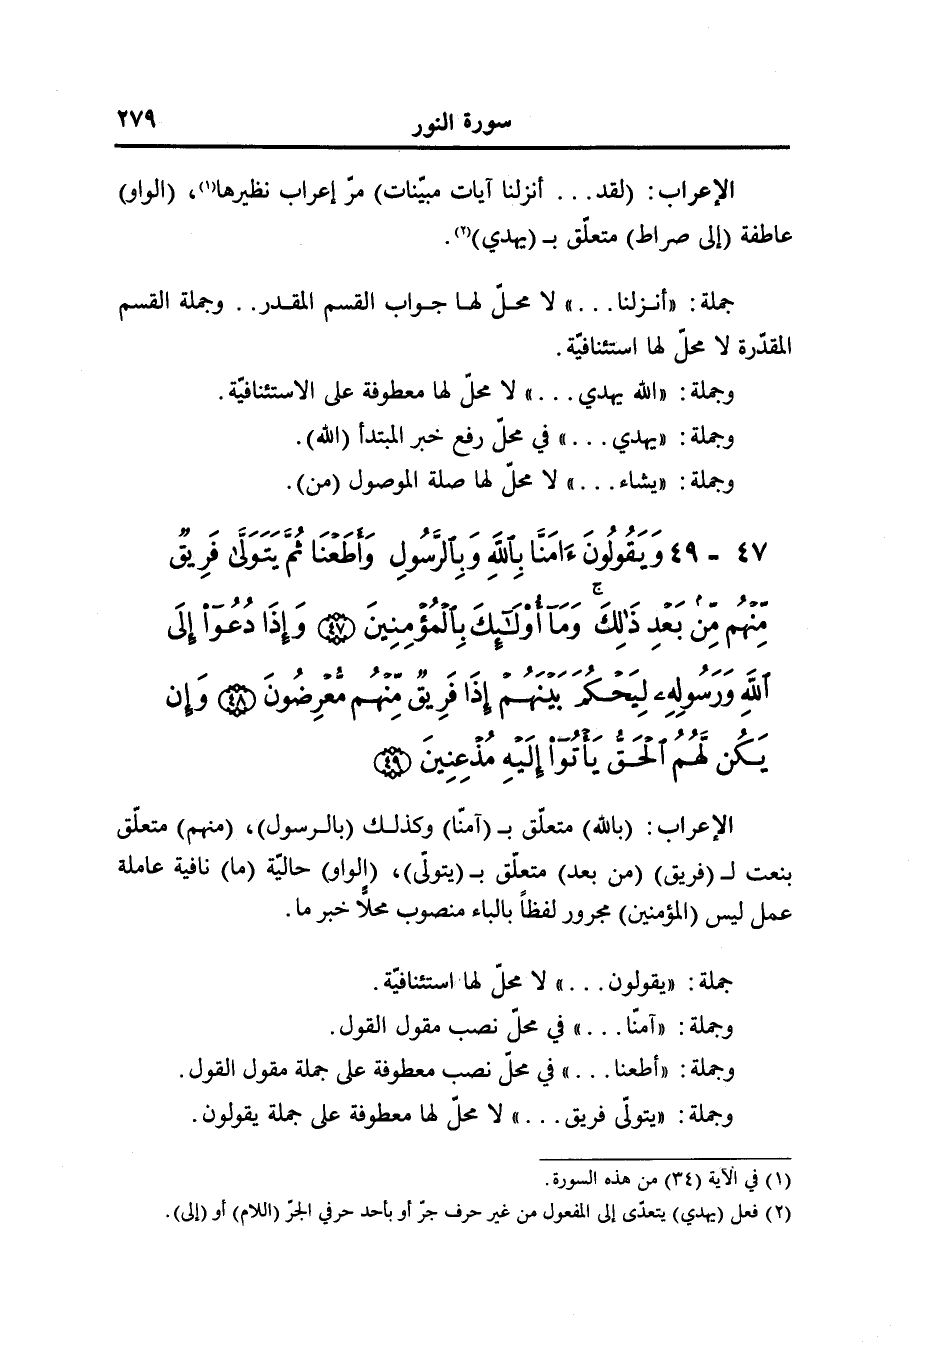 سورة النور ٢٧٩
الإعراب: (لقد... أنزلنا آيات مبيّنات) مرّ إعراب نظيرها(١)، (الواو)
عاطفة (إلى صراط) متعلّق بـ (يهدي)(٢).
جملة: «أنـزلنا...» لا محـلّ لهـا جـواب القسم المقـدر.. وجملة القسم
المقدّرة لا محلّ لها استئنافيّة.
وجملة: «الله يهدي...» لا محلّ لها معطوفة على الاستئنافيّة.
وجملة: «يهدي...» في محلّ رفع خبر المبتدأ (الله).
وجملة: «يشاء...» لا محلّ لها صلة الموصول (من).
٤٧ - ٤٩ وَيَقُولُونَ ءَامَنَّا بِٱللَّهِ وَبِٱلرَّسُولِ وَأَطَعْنَا ثُمَّ يَتَوَلَّىٰ فَرِيقٌ
مِّنْهُم مِّنۢ بَعْدِ ذَٰلِكَ ۚ وَمَآ أُو۟لَـٰٓئِكَ بِٱلْمُؤْمِنِينَ ﴿٤٧﴾ وَإِذَا دُعُوٓا۟ إِلَى
ٱللَّهِ وَرَسُولِهِۦ لِيَحْكُمَ بَيْنَهُمْ إِذَا فَرِيقٌ مِّنْهُم مُّعْرِضُونَ ﴿٤٨﴾ وَإِن
يَكُن لَّهُمُ ٱلْحَقُّ يَأْتُوٓا۟ إِلَيْهِ مُذْعِنِينَ ﴿٤٩﴾
الإعراب: (بالله) متعلّق بـ (آمنّا) وكذلـك (بالـرسول)، (منهم) متعلّق
بنعت لـ (فريق) (من بعد) متعلّق بـ (يتولّى)، (الواو) حاليّة (ما) نافية عاملة
عمل ليس (المؤمنين) مجرور لفظاً بالباء منصوب محلاًّ خبر ما.
جملة: «يقولون...» لا محلّ لها استئنافيّة.
وجملة: «آمنّا...» في محلّ نصب مقول القول.
وجملة: «أطعنا...» في محلّ نصب معطوفة على جملة مقول القول.
وجملة: «يتولّى فريق...» لا محلّ لها معطوفة على جملة يقولون.
(١) في الآية (٣٤) من هذه السورة.
(٢) فعل (يهدي) يتعدّى إلى المفعول من غير حرف جرّ أو بأحد حرفي الجرّ (اللام) أو (إلى).